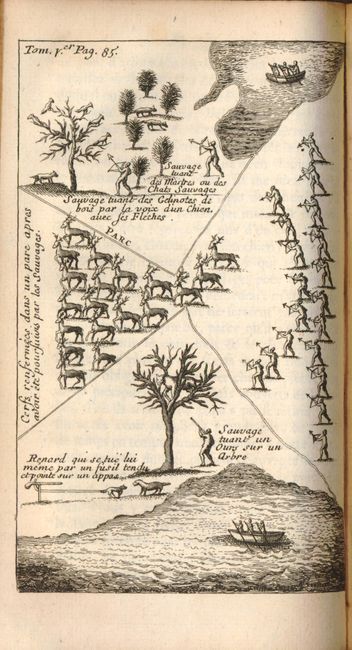 Tom. 1.er Pag. 85.
Sauvage
tuant
des Martres ou des
Chats Sauvages
Sauvage tuant des Gelinotes de
bois par la voix d'un Chien,
avec ses Fleches.
PARC
Cerfs renfermées dans un parc apres
avoir été poursuivis par les Sauvages.
Sauvage
tuant un
Ours sur un
Arbre
Renard qui se tuë lui
même par un fusil tendu
et pointé sur un appas